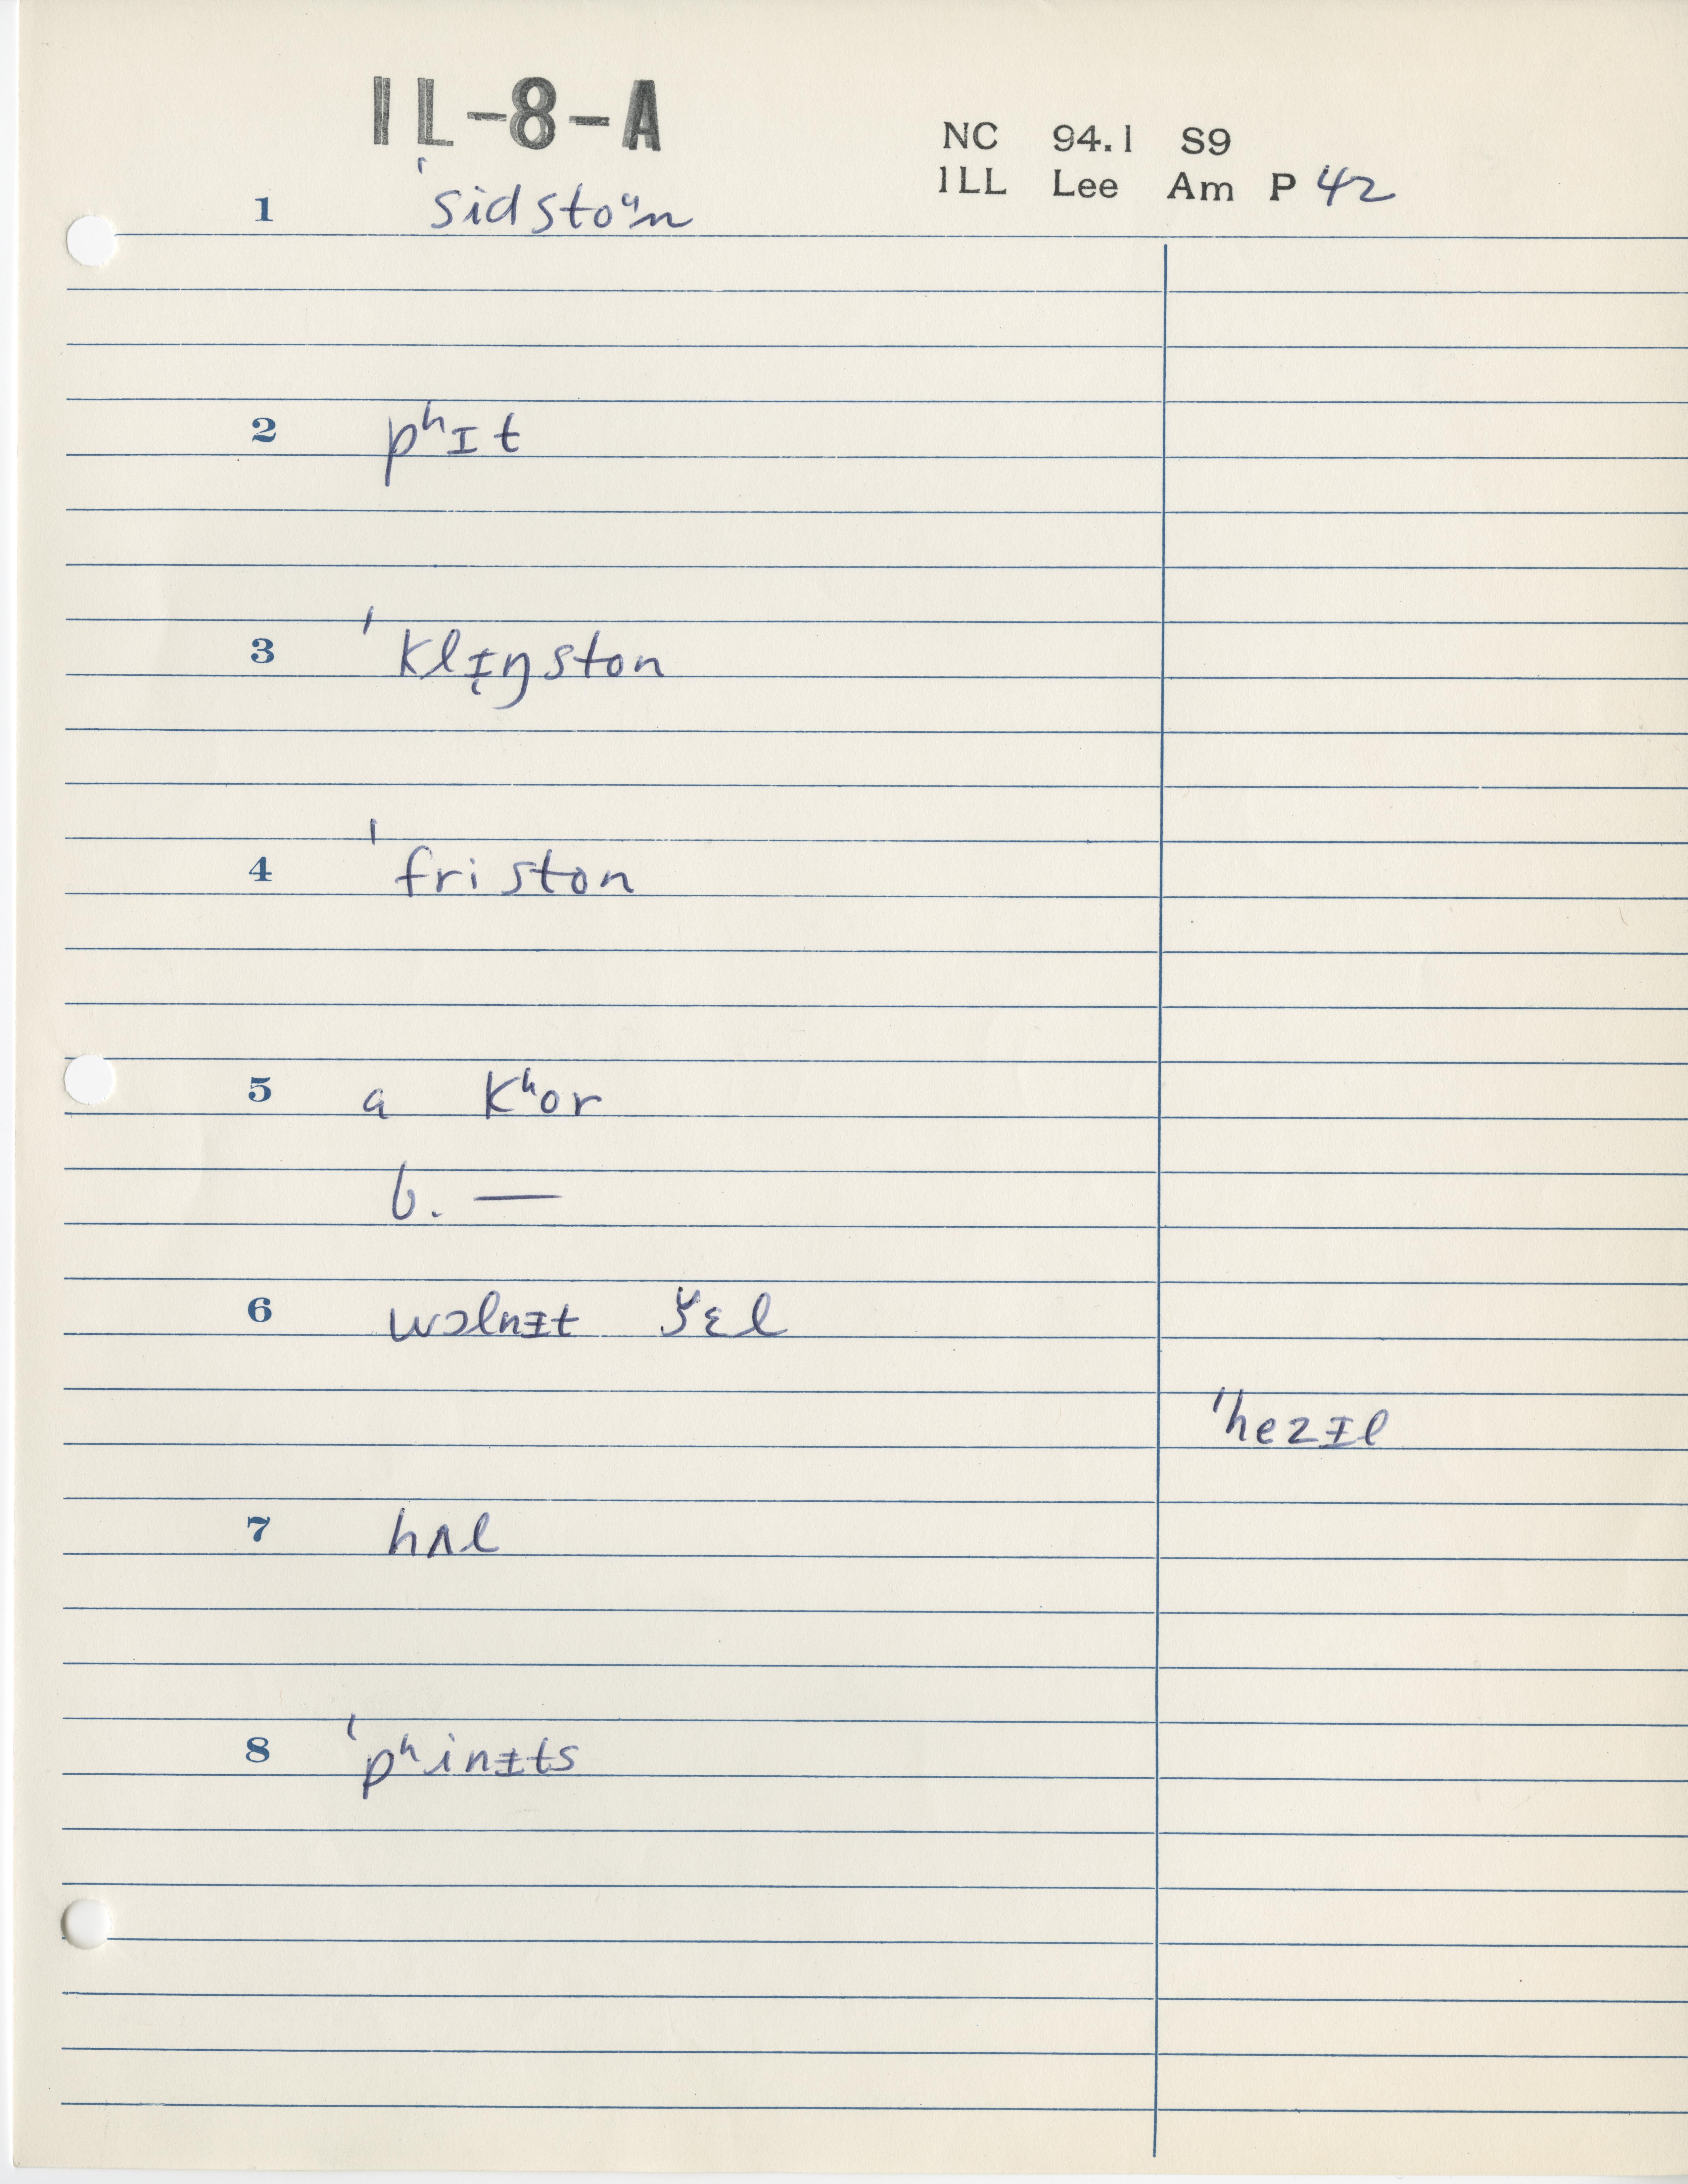 IL-8-A
NC 94.1 S9
ILL Lee Am P 42
1 ˈsidstoᵘn
2 pʰɪt
3 ˈklɪ̨ŋston
4 ˈfriston
5 a kʰor
b. —
6 wɔlnᵻt š̯ɛl
ˈhezᵻl
7 hʌl
8 ˈpʰinᵻts